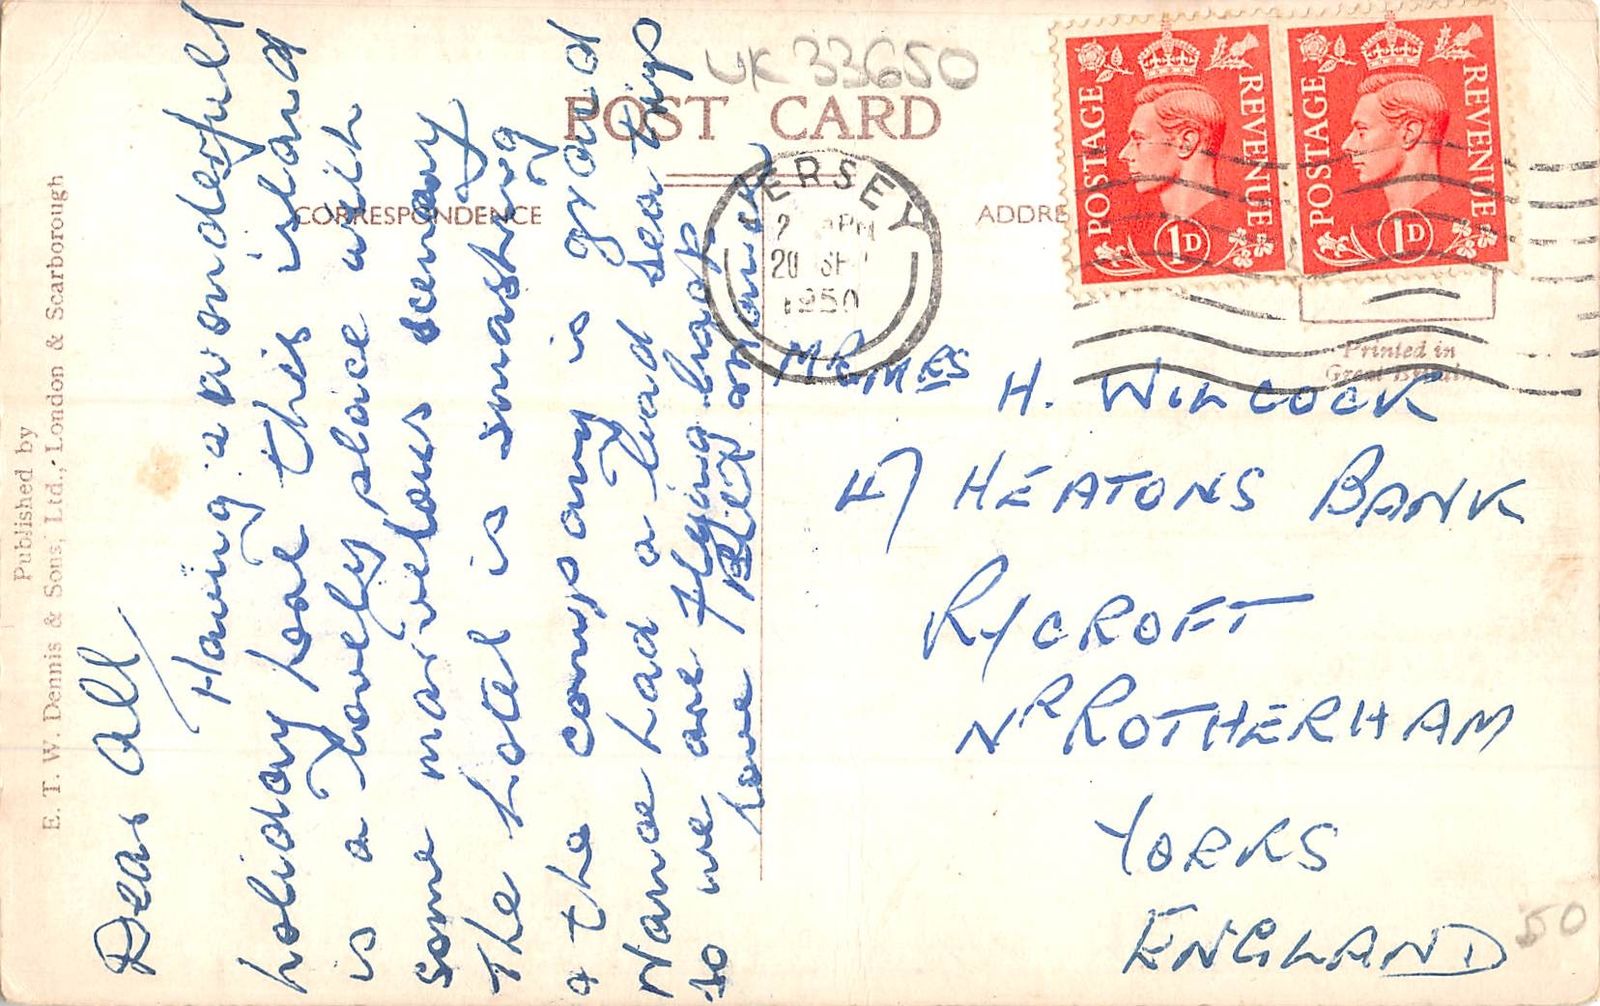 Published by
E. T. W. Dennis & Sons, Ltd., London & Scarborough
POST CARD
CORRESPONDENCE
ADDRE
UK 33650
POSTAGE REVENUE
1D
POSTAGE REVENUE
1D
JERSEY
PM
20 SE
1950
Printed in
Great Britain
Dear All
Having a wonderful
holiday here this island
is a lovely place with
some marvelous scenery
The hotel is smashing
& the company is grand
Nance had a bad sea trip
so we are flying back
Love Alex & Nance
MR MRS H. WILCOCK
47 HEATONS BANK
RYCROFT
NR ROTHERHAM
YORKS
ENGLAND
50